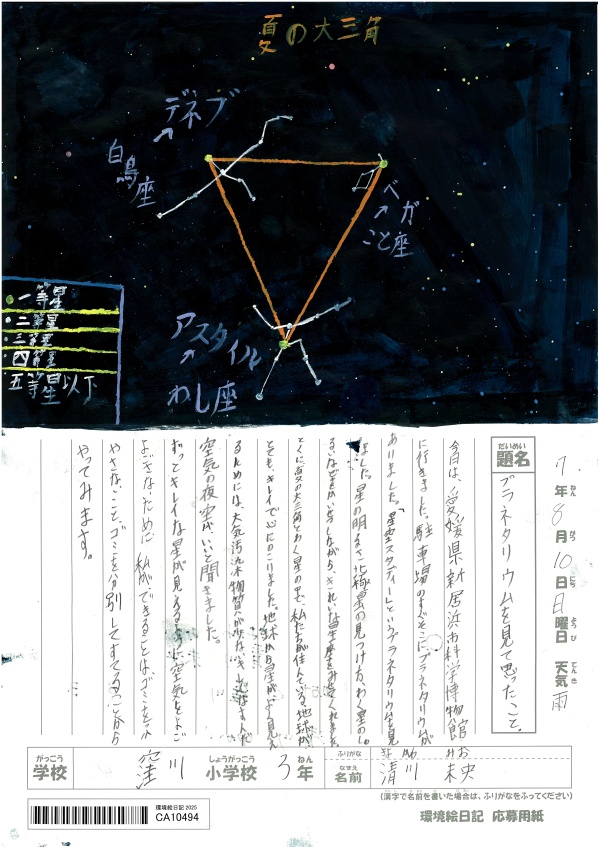 夏の大三角
デネブ
白鳥座
ベガ
こと座
アスタイル
わし座
一等星
二等星
三等星
四等星
五等星以下
7年8月10日日曜日 天気雨
ねん がつ にち ようび てんき
だいめい
題名
プラネタリウムを見て思ったこと。
今日は、愛媛県新居浜市科学博物館
に行きました。駐車場のすぐそこにプラネタリウムが
ありました。「星空スタディーというプラネタリウムを見
ました。星の明るさ、北極星の見つけ方、わく星の
きれいな星座をみせてくれました
とくに夏の大三角とわく星の中で、私たちが住んでいる、地球が
とても、キレイで心にのこりました。地球から星がよく見え
るためには、大気汚染物質が少ない
空気の夜空が、いいと聞きました。
ずっとキレイな星が見えるように、空気をよご
よごさないために、私ができることは、ゴミをふ
やさないこと、ゴミを分別してすてることから
やってみます。
がっこう
学校
窪川
しょうがっこう
小学校
3
ねん
年
ふりがな
なまえ
名前
みお
清川 未央
(漢字で名前を書いた場合は、ふりがなをふってください)
環境絵日記2025
CA10494
環境絵日記 応募用紙